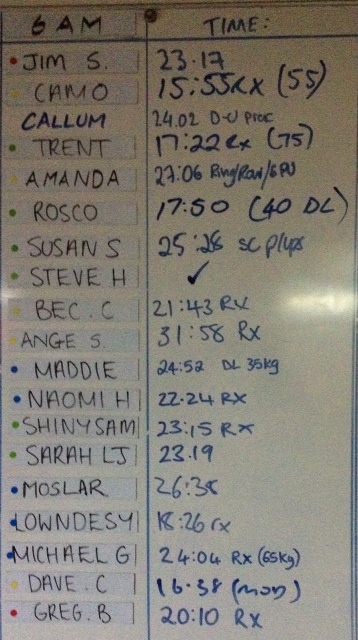 6AM TIME:
JIM S. 23.17
CAMO 15:55RX (55)
CALLUM 24.02 D-U
TRENT 17:22 Rx (75)
AMANDA 27:06 Ring/Row/
ROSCO 17:50 (40 DL)
SUSAN S 25:28 SC P/ups
STEVE H ✓
BEC. C 21:43 RX
ANGE S. 31:58 Rx
MADDIE 24:52 DL 35kg
NAOMI H 22-24 RX
SHINYSAM 23:15 Rx
SARAH LJ 23.19
MOSLAR 26:38
LOWNDESY 18:26 rx
MICHAEL G 24:04 RX (65kg)
DAVE. C 16.38 (mod)
GREG. B 20:10 Rx